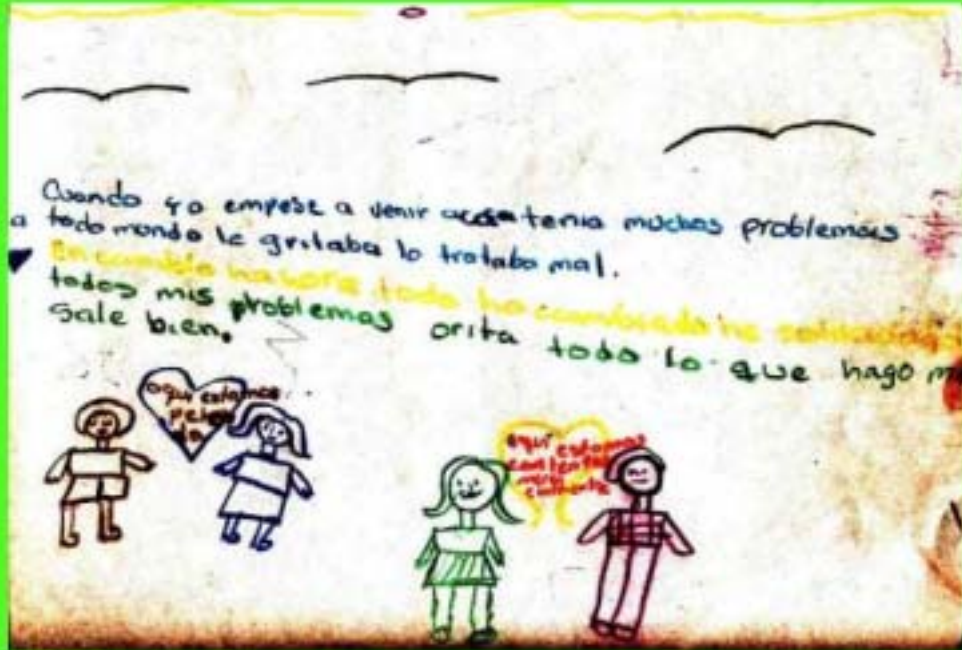 Cuando yo empese a venir acá tenia muchos problemas
a todo mundo le gritaba lo trataba mal.
En cambio hahora todo ha cambiado he solucionado
todos mis problemas orita todo lo que hago m
Sale bien.
aqui estamos
aqui estamos